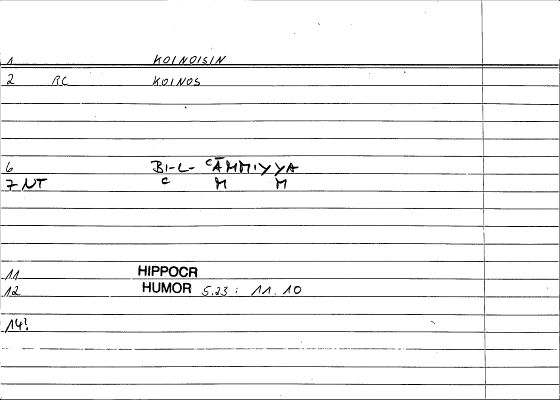 1 KOINOISIN
2 RC KOINOS
6 BI-L- ʿĀMMIYYA
7 NT ʿ M M
11 HIPPOCR
12 HUMOR 5.23 : 11.10
14?